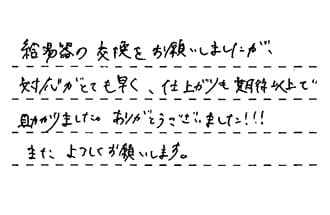 給湯器の交換をお願いしましたが、
対応がとても早く、仕上がりも期待以上で
助かりました。ありがとうございました!!!
また よろしくお願いします。